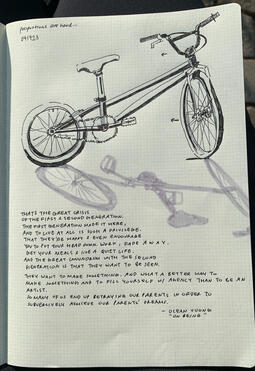 PROPORTIONS ARE HARD...
THAT'S THE GREAT CRISIS
OF THE FIRST & SECOND GENERATION.
THE FIRST GENERATION MADE IT HERE,
AND TO LIVE AT ALL IS SUCH A PRIVILEGE.
THAT THEY'RE HAPPY & EVEN ENCOURAGE
YOU TO PUT YOUR HEAD DOWN. WORK, FADE AWAY,
GET YOUR MEALS & LIVE A QUIET LIFE.
AND THE GREAT CONUNDRUM WITH THE SECOND
GENERATION IS THAT THEY WANT TO BE SEEN.
THEY WANT TO MAKE SOMETHING. AND WHAT A BETTER WAY TO
MAKE SOMETHING AND TO FILL YOURSELF W/ AGENCY THAN TO BE AN
ARTIST.
SO MANY OF US END UP BETRAYING OUR PARENTS IN ORDER TO
SUBVERSIVELY ACHIEVE OUR PARENTS' DREAMS.
- OCEAN VUONG
"ON BEING"